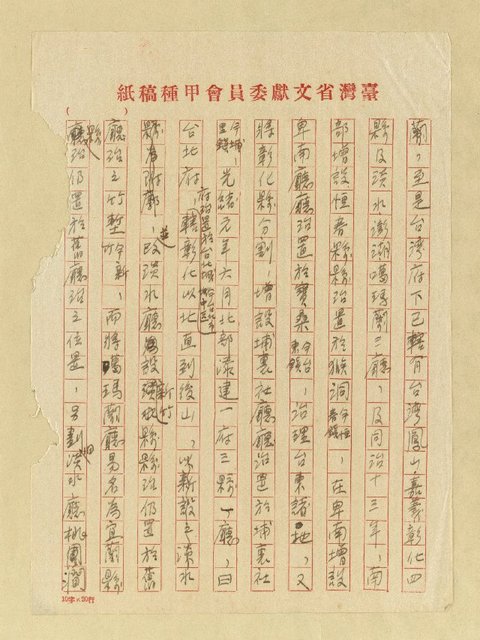 臺灣省文獻委員會甲種稿紙
蘭，至是台灣府下已轄有台灣鳳山嘉義彰化四
縣及淡水澎湖噶瑪蘭三廳，及同治十三年，南
部增設恒春縣縣治置於猴洞今恒春鎮，在卑南增設
卑南廳廳治置於寶桑今台東鎮，治理台東諸地，又
將彰化縣分割，增設埔裏社廳廳治置於埔裏社
今埔里鎮，光緒元年六月北部添建一府三縣一廳，曰
台北府，府治置於台北城，轄彰化以北直到後山，以新設之淡水
縣為附廓，並改淡水廳設新竹縣縣治仍置於舊
廳治之竹塹今新竹，而將噶瑪蘭廳易名為宜蘭縣
縣治仍置於舊廳治之位置，另劃淡水廳桃園澗
10字×20行